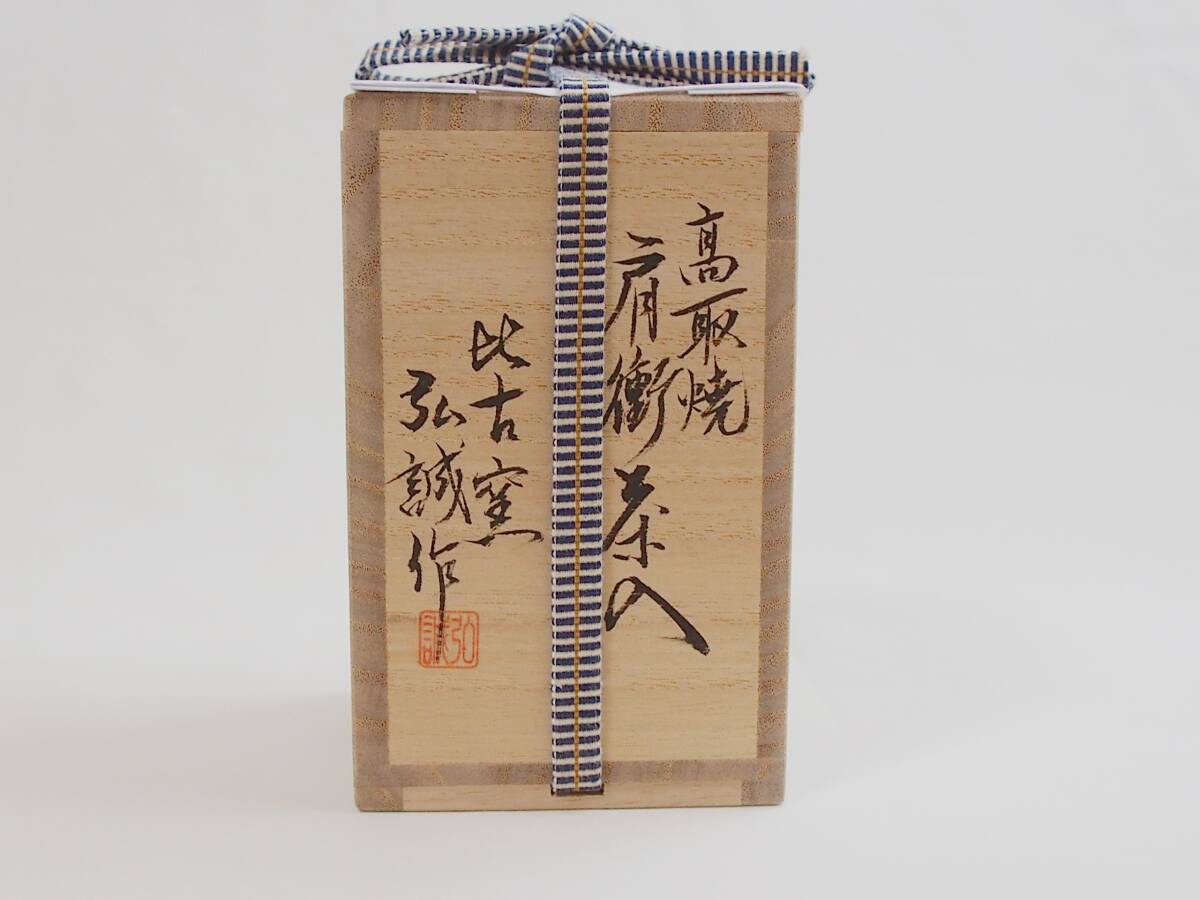 高取焼
肩衝茶入
比古窯
弘誠作
弘誠